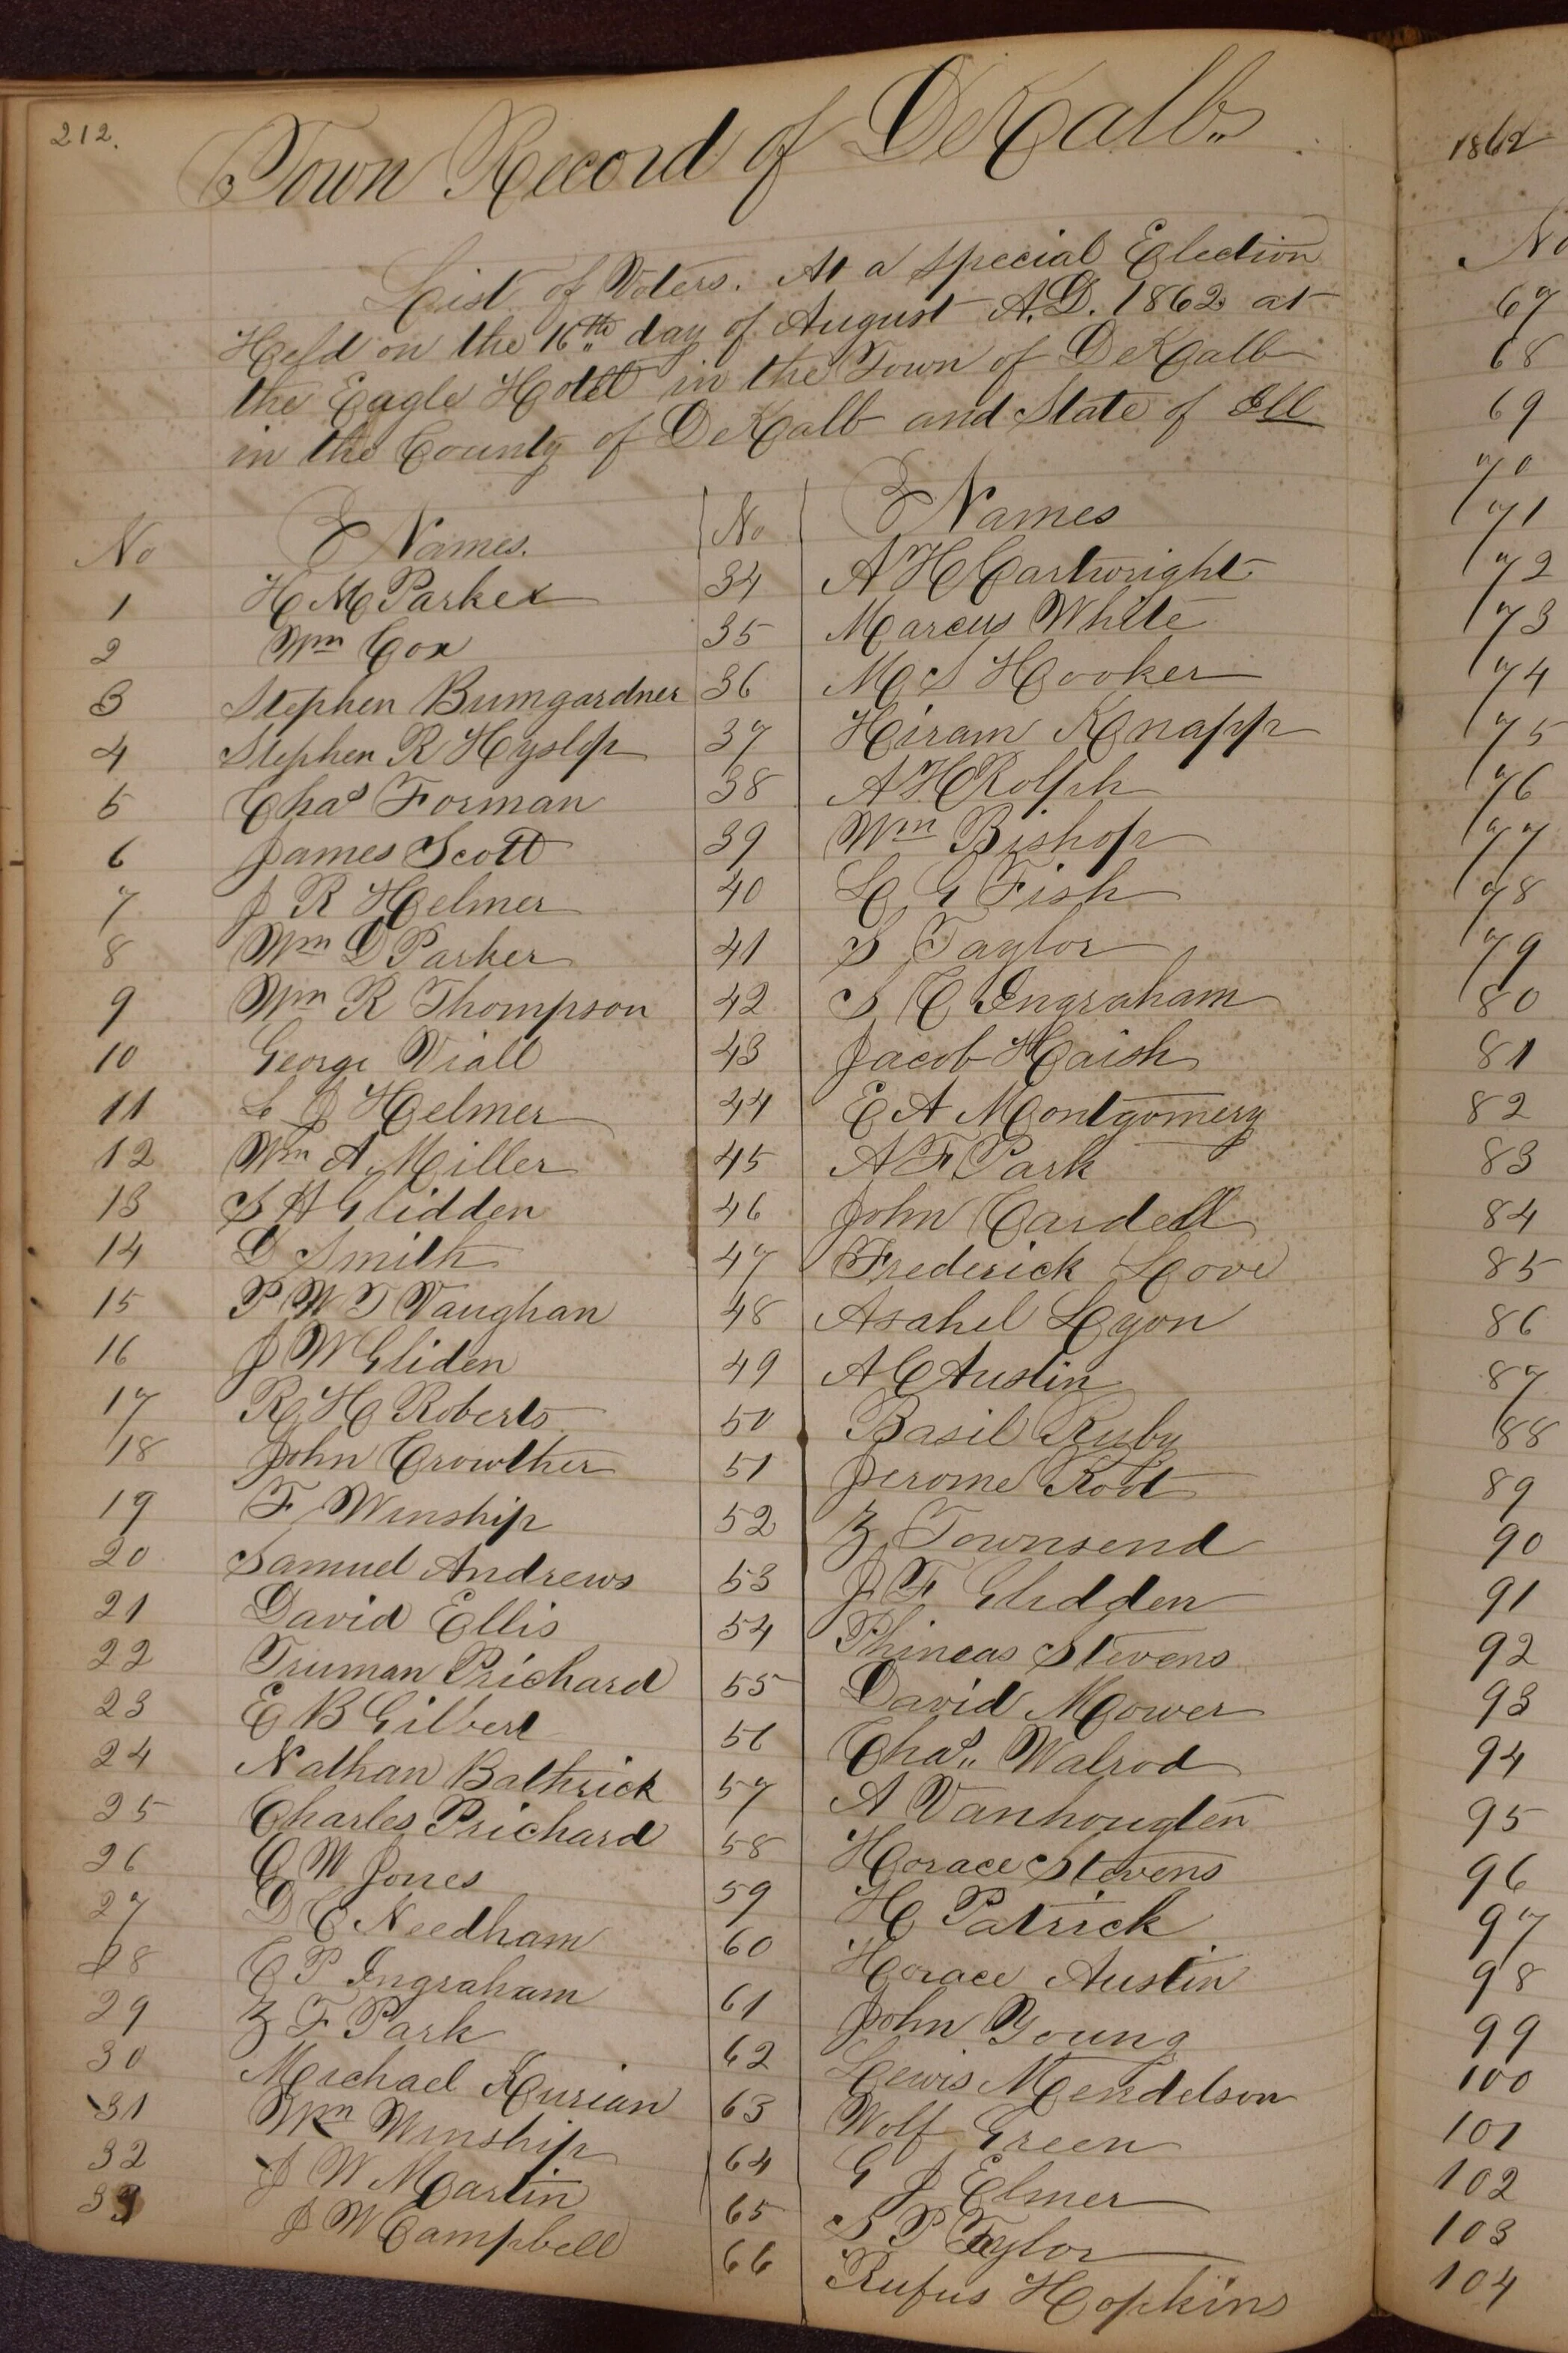 212.
Town Record of DeKalb
List of Voters. At a special Election
Held on the 16th day of August A.D. 1862 at
the Eagle Hotel in the Town of DeKalb
in the County of DeKalb and State of Ill
No Names.
1 H M Parker
2 Wm Cox
3 Stephen Bumgardner
4 Stephen R Hyslop
5 Chas Forman
6 James Scott
7 J R Helmer
8 Wm D Parker
9 Wm R Thompson
10 George Viall
11 L J Helmer
12 Wm A Miller
13 S H Glidden
14 D Smith
15 P W T Vaughan
16 J W Gliden
17 R H Roberts
18 John Crowther
19 F Winship
20 Samuel Andrews
21 David Ellis
22 Truman Prichard
23 E B Gilbert
24 Nathan Bathrick
25 Charles Prichard
26 C W Jones
27 D C Needham
28 C P Ingraham
29 Z F Park
30 Michael Kurian
31 Wm Winship
32 J W Martin
33 J W Campbell
No Names
34 A H Cartwright
35 Marcus White
36 M S Hooker
37 Hiram Knapp
38 A H Rolph
39 Wm Bishop
40 L G Fish
41 S Taylor
42 S C Ingraham
43 Jacob Haish
44 E A Montgomery
45 A F Park
46 John Cardell
47 Frederick Love
48 Asahel Lyon
49 A C Austin
50 Basil Ruby
51 Jerome Root
52 Z Townsend
53 J F Glidden
54 Phineas Stevens
55 David Mower
56 Chas. Walrod
57 A Vanhougten
58 Horace Stevens
59 H Patrick
60 Horace Austin
61 John Young
62 Lewis Mendelson
63 Wolf Green
64 G J Elmer
65 S P Taylor
66 Rufus Hopkins
1862
No
67
68
69
70
71
72
73
74
75
76
77
78
79
80
81
82
83
84
85
86
87
88
89
90
91
92
93
94
95
96
97
98
99
100
101
102
103
104